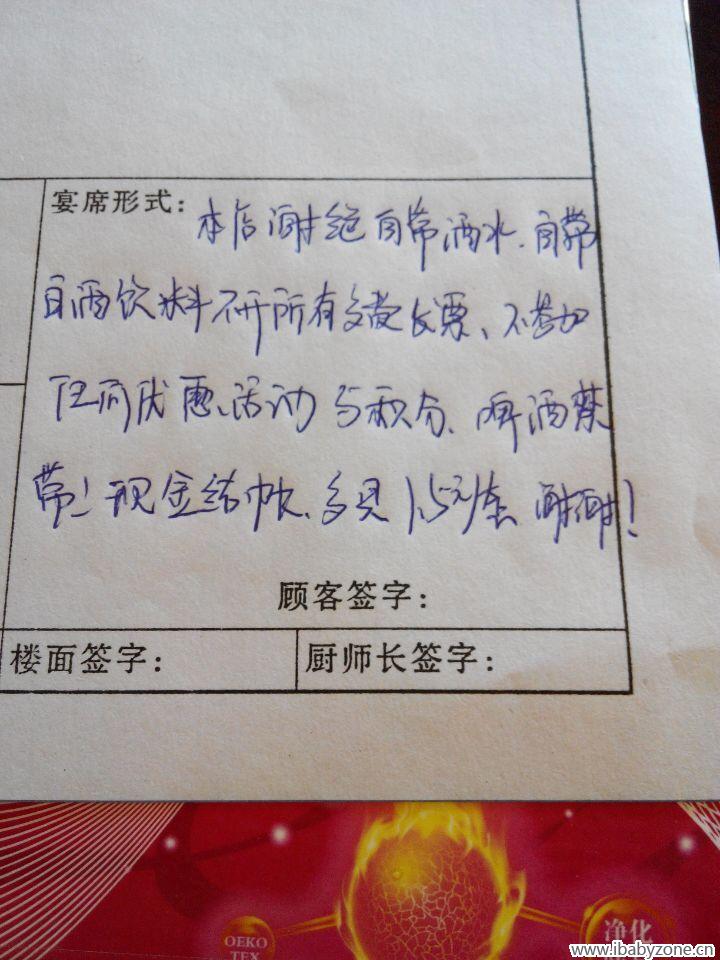 宴席形式：本店谢绝自带酒水、自带
白酒饮料不开所有餐费发票、不参加
任何优惠、活动与积分、啤酒禁
带！现金结帐、餐具1.5元/套 谢谢！
顾客签字：
楼面签字： 厨师长签字：
OEKO
TEX
净化
www.ibabyzone.cn